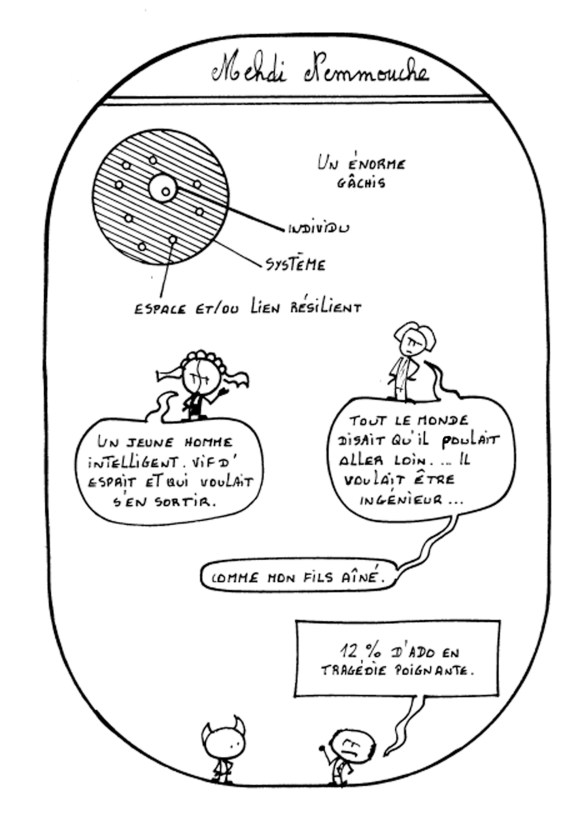 Mehdi Nemmouche
UN ÉNORME
GÂCHIS
INDIVIDU
SYSTÈME
ESPACE ET/OU LIEN RÉSILIENT
UN JEUNE HOMME
INTELLIGENT. VIF D'
ESPRIT ET QUI VOULAIT
S'EN SORTIR.
TOUT LE MONDE
DISAIT QU'IL POUVAIT
ALLER LOIN. ... IL
VOULAIT ÊTRE
INGÉNIEUR ...
COMME MON FILS AÎNÉ.
12 % D'ADO EN
TRAGÉDIE POIGNANTE.